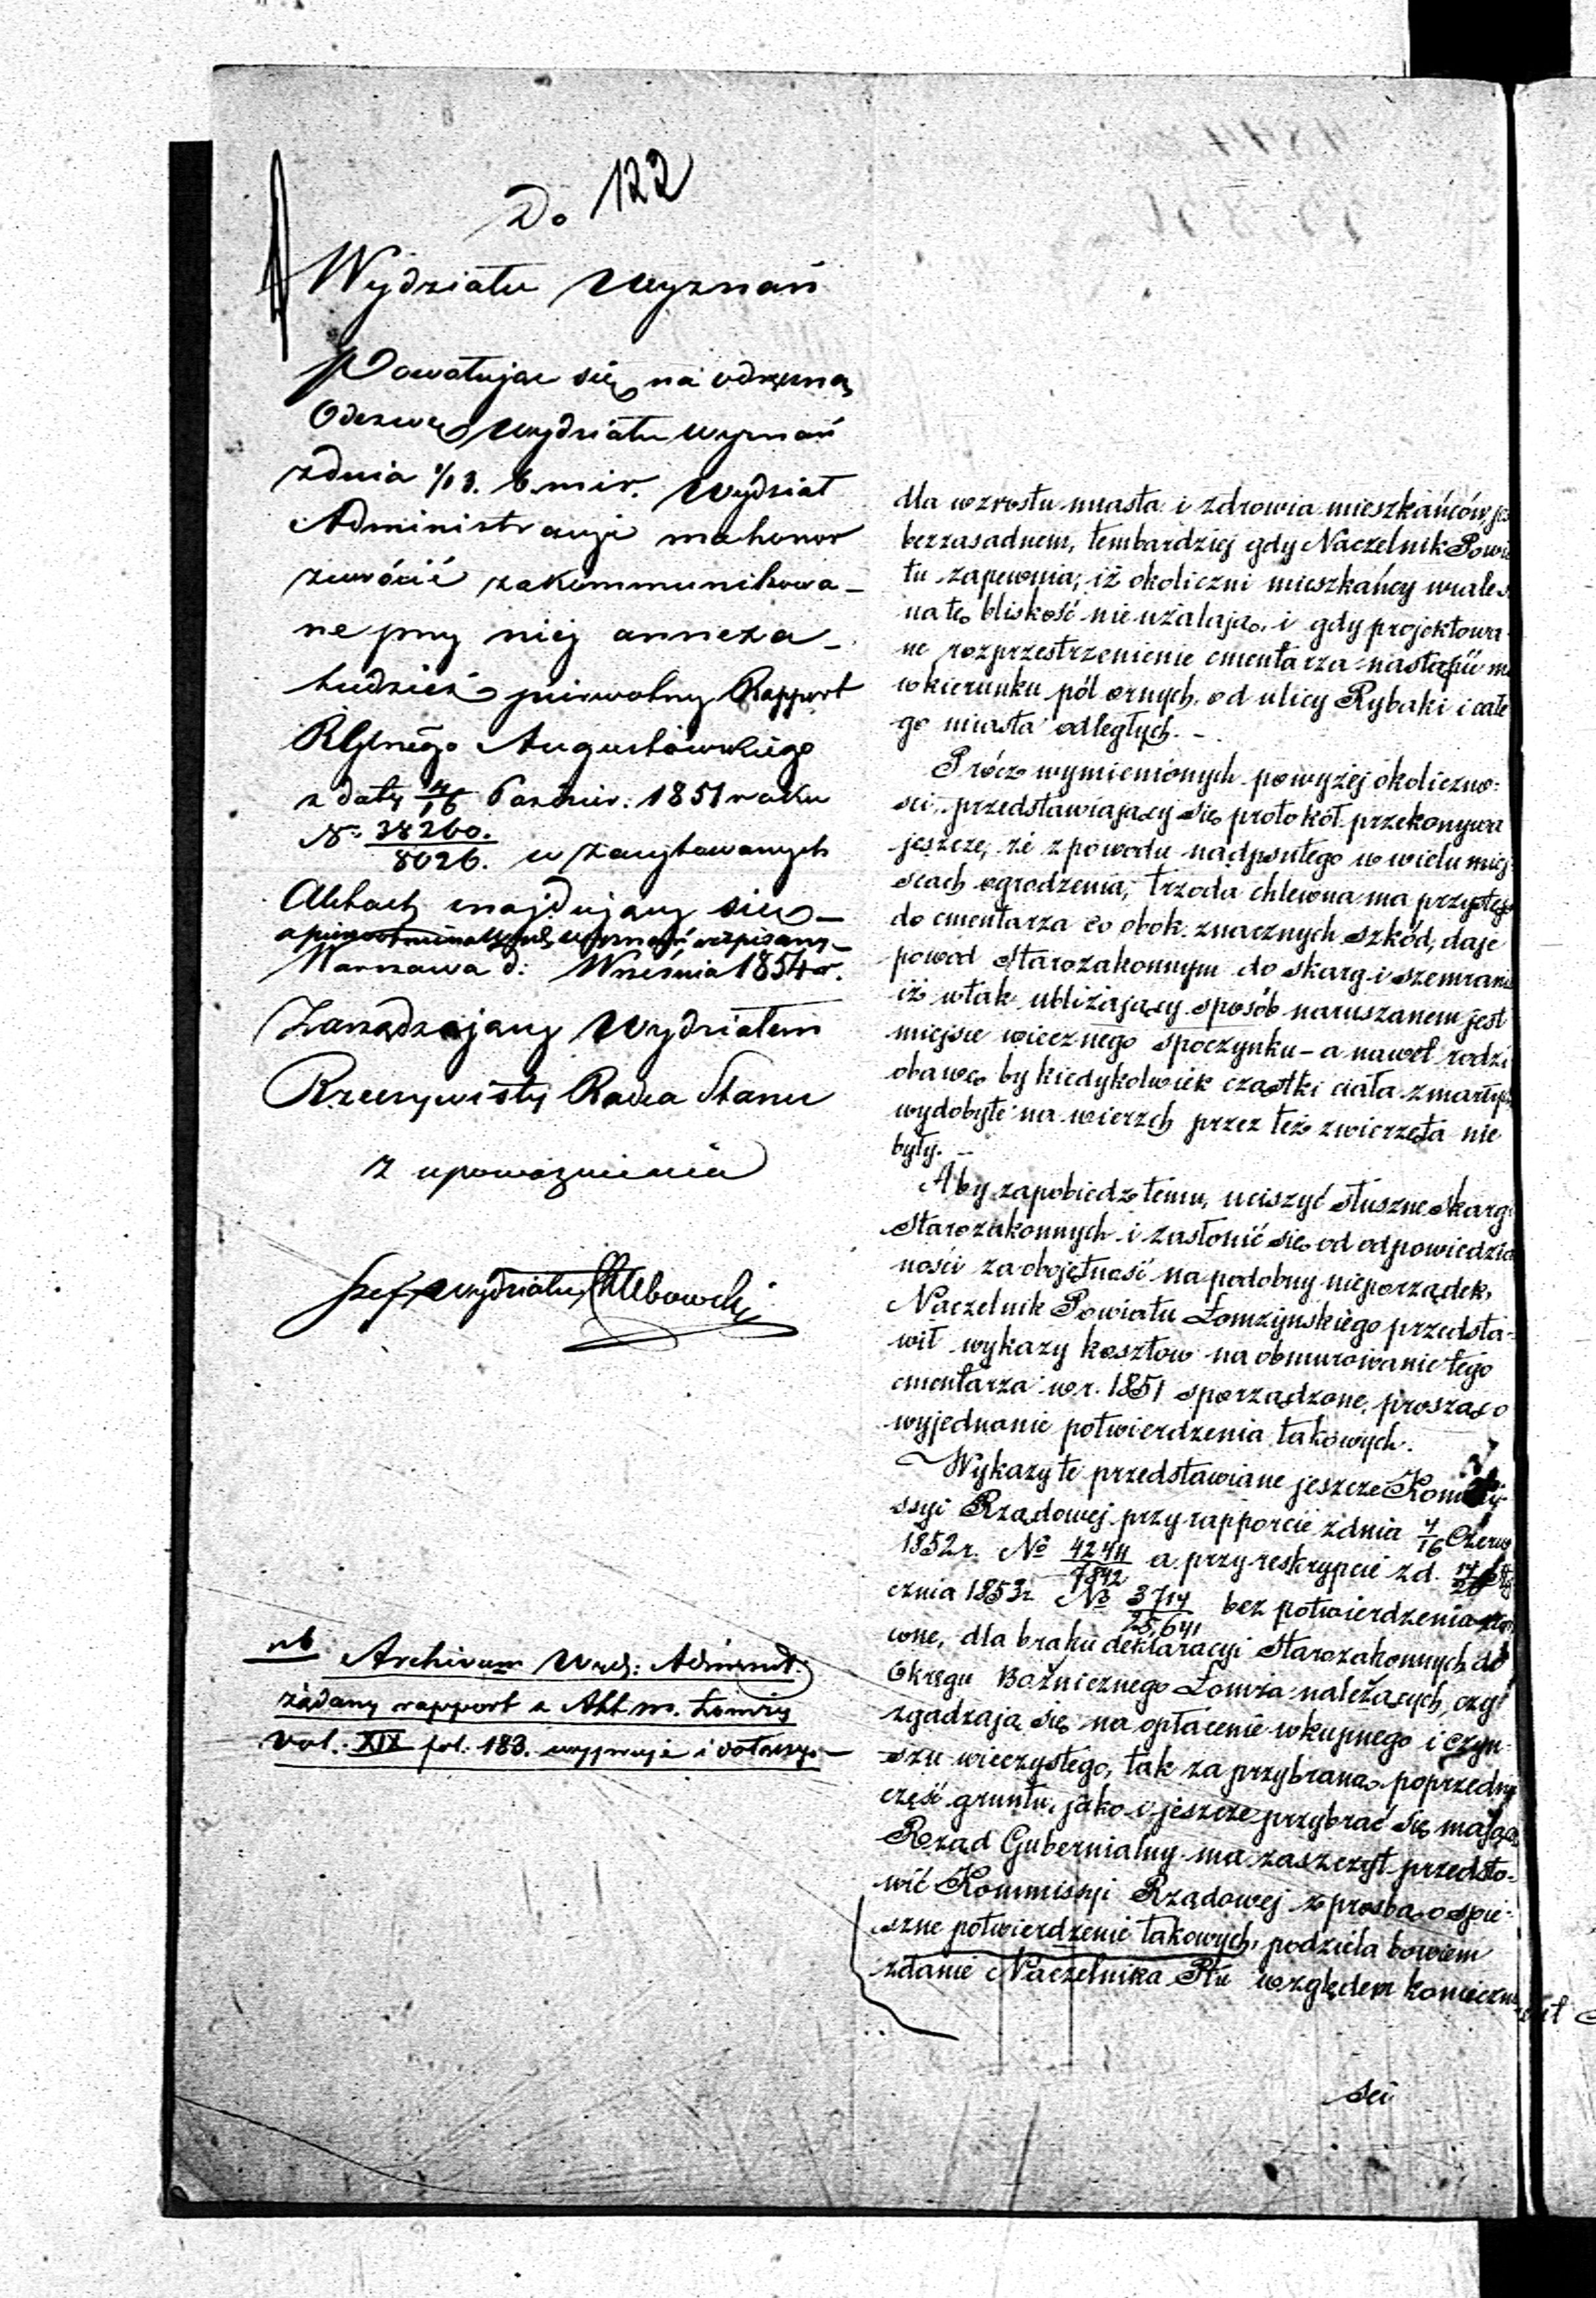 122
Do
Wydziału Wyznań
Powołując się na odręczną
Odezwę Wydziału Wyznań
z dnia 1/13. b. m i r. Wydział
Administracyi ma honor
zwrócić zakommunikowa-
ne przy niej annexa
tudzież pierwotny Rapport
Augustowskiego
z daty 4/16 Paździer: 1851 roku
No 38260./8026. w zacytowanych
Aktach znajdujący się
Warszawa d: Września 1854 r.
Zarządzający Wydziałem
Rzeczywisty Radca Stanu
z upoważnienia
Szef Wydziału
nb Archiwum
żądany rapport z Akt m. Łomży
vol. XIX fol. 183. wyjmuje i
dla wzrostu miasta i zdrowia mieszkańców jes
bezzasadnem, tembardziej gdy Naczelnik Powia
tu zapewnia, iż okoliczni mieszkańcy wcale s
na tę bliskość nie użalają, i gdy projektowa-
ne rozprzestrzenienie cmentarza nastąpić ma
w kierunku pól ornych, od ulicy Rybaki i całe
go miasta odległych. -
Prócz wymienionych powyżej okoliczno-
ści, przedstawiający się protokół przekonywa
jeszcze, że z powodu nadpsutego w wielu miej-
scach ogrodzenia, trzoda chlewna ma przystęp
do cmentarza co obok znacznych szkód, daje
powod Starozakonnym do skarg i szemrania
iż w tak ubliżający sposób naruszanem jest
miejsce wiecznego spoczynku - a nawet rodzi
obawę by kiedykolwiek cząstki ciała zmarłych
wydobyte na wierzch przez też zwierzęta nie
były. -
Aby zapobiedz temu, uciszyć słuszne skargi
Starozakonnych i zasłonić się od odpowiedzial
ności za obojętność na podobny nieporządek,
Naczelnik Powiatu Łomżyńskiego przedsta-
wił wykazy kosztów na obmurowanie tego
cmentarza w r. 1851 sporządzone, prosząc o
wyjednanie potwierdzenia takowych.
Wykazy te przedstawiane jeszcze Kommi-
ssyi Rządowej przy rapporcie z dnia 4/16 Czerw
1852 r. No 4244/7842 a przy reskrypcie z d.
cznia 1853 r No 3714/25,641 bez potwierdzenia
cone, dla braku deklaracyi Starozakonnych do
Okręgu Bożniczego Łomża należących, czy
zgadzają się na opłacenie wkupnego i czyn-
szu wieczystego, tak za przybraną poprzednio
część gruntu, jako i jeszcze przybrać się mającą
Rząd Gubernialny ma zaszczyt przedsta-
wić Kommissyi Rządowej z prośbą o spie-
szne potwierdzenie takowych, podziela bowiem
zdanie Naczelnika Ptu względem konieczno
ści